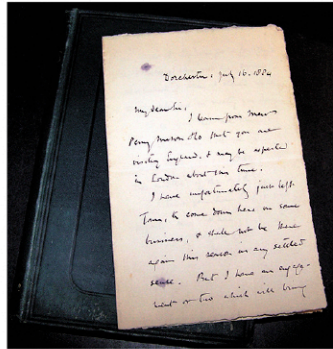 Dorchester, July 16. 1884
My dear Sir,
I learn from Messrs
Perry Mason &Co that you are
visiting England, & may be expected
in London about this time.
I have unfortunately just left
Town, to come down here on some
business, & shall not be there
again this season in any settled
sense. But I have an engage-
ment or two which will bring